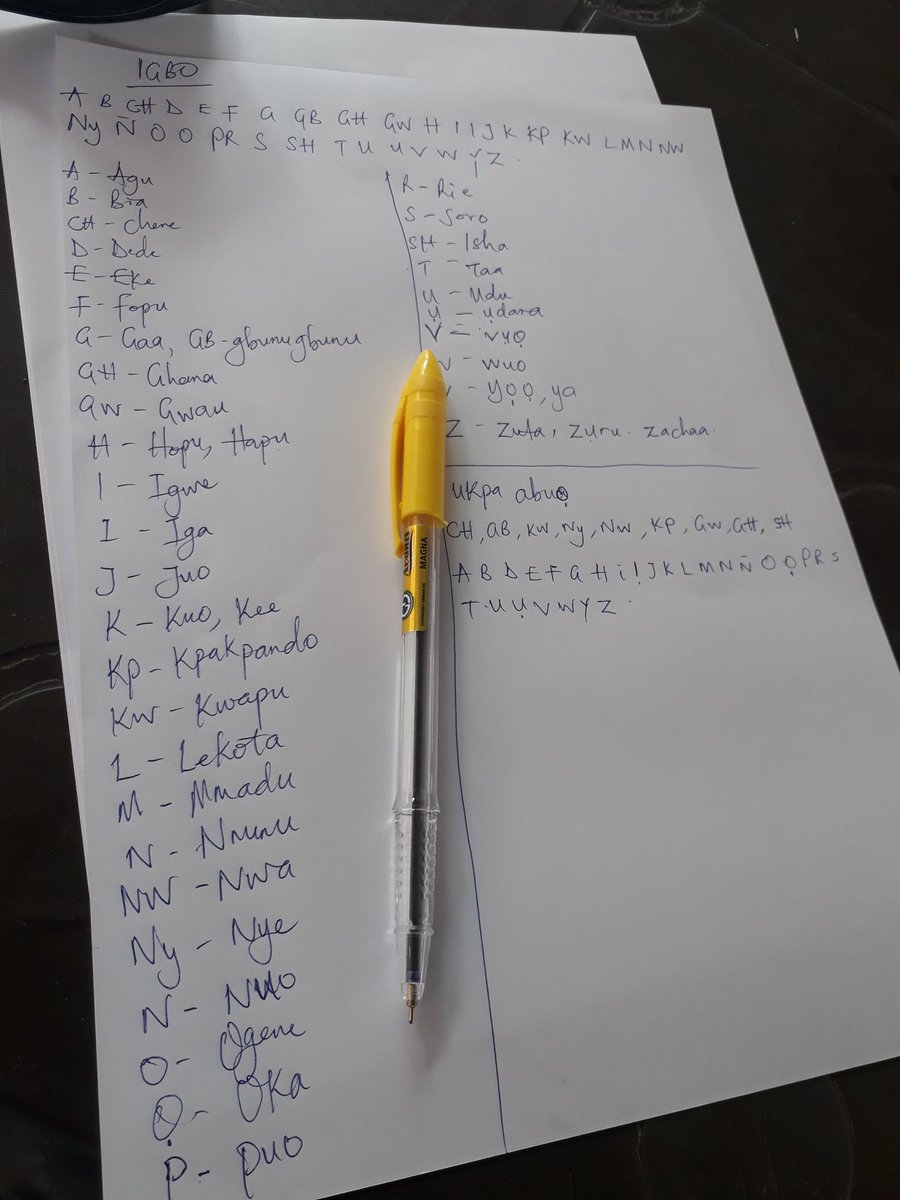 IGBO
A B CH D E F G GB GH GW H I I J K KP KW L M N NW
Ny Ñ O O P R S SH T U U V W Y Z
A - Agu
B - Bia
CH - Chere
D - Dede
E - Eke
F - Fopu
G - Gaa, GB - gbunugbunu
GH - Ghana
GW - Gwau
H - Hopu, Hapu
I - Igwe
I - Iga
J - Juo
K - Kuo, Kee
Kp - Kpakpando
KW - Kwapu
L - Lekota
M - Mmadu
N - Nnunu
NW - Nwa
Ny - Nye
N - Nuo
O - Ogene
Ọ - Oka
P - puo
R - Rie
S - Soro
SH - Isha
T - Taa
U - Udu
Ụ - ụdara
V - vuọ
- wuo
- yọọ, ya
Z - Zuta, Zụrụ. zachaa
ukpa abuọ
CH, GB, KW, Ny, NW, KP, GW, GH, SH
A B D E F G H i Ị J K L M N Ñ O Ọ P R S
T U Ụ V W Y Z
MAGNA